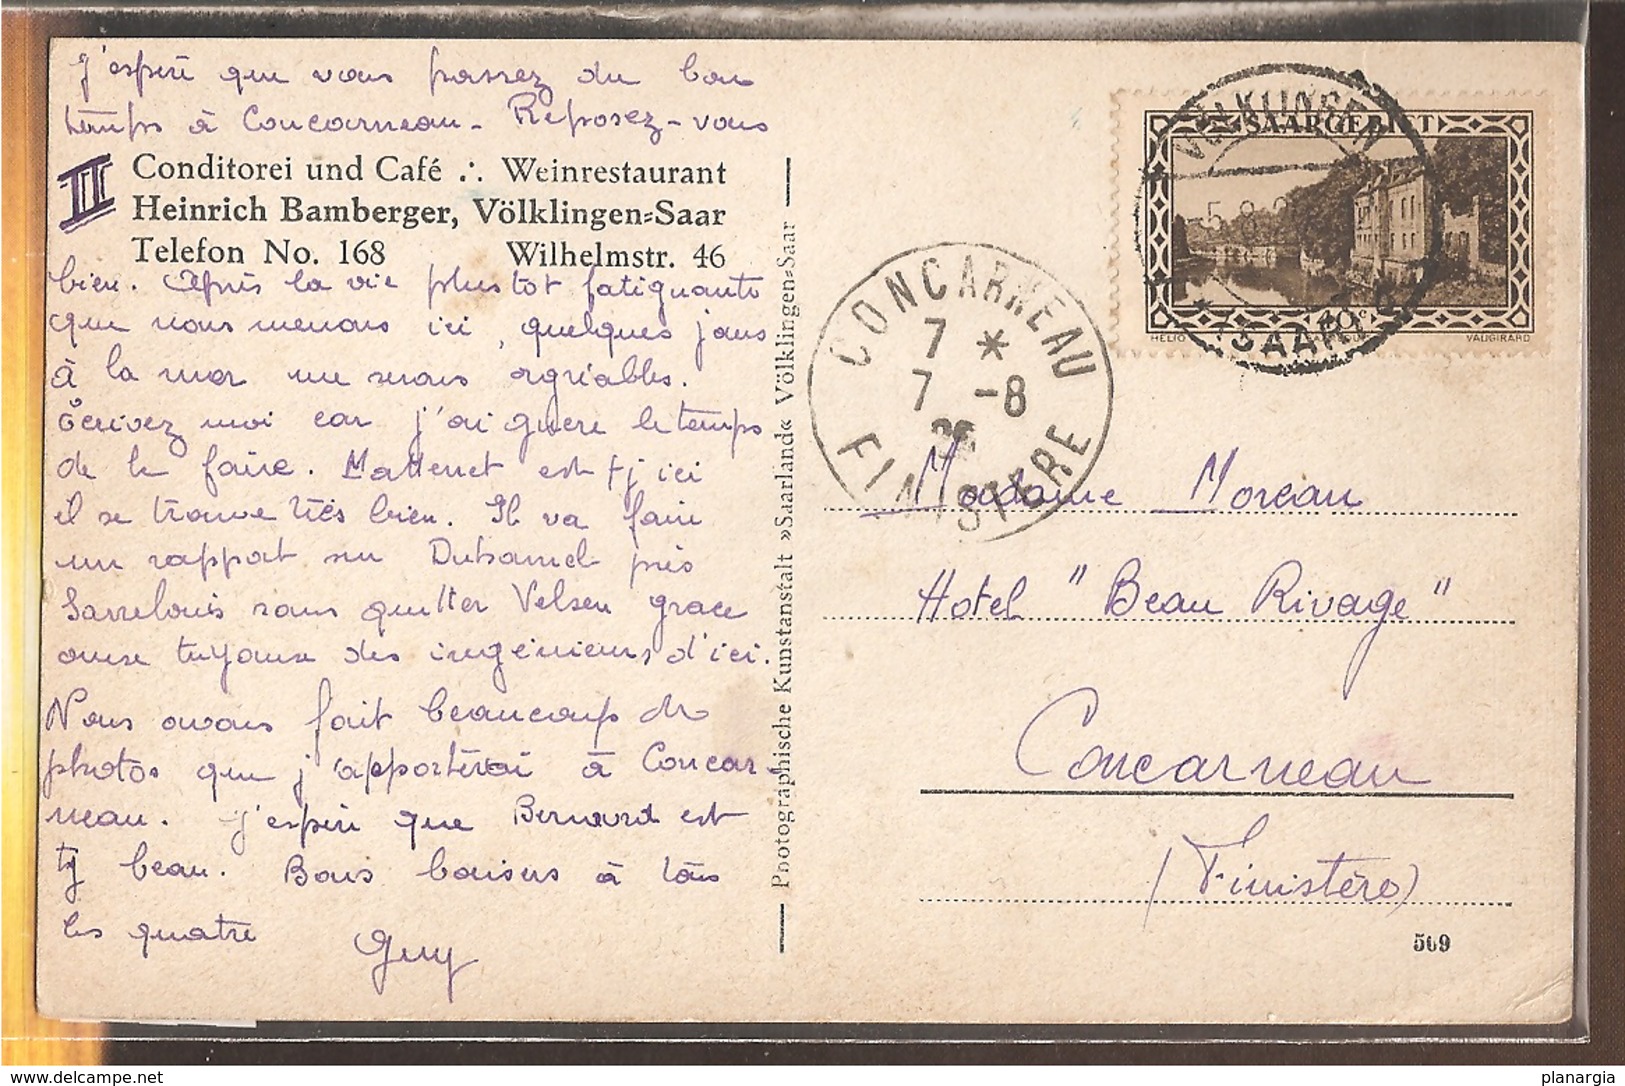 J'espère que vous passez du bon
temps à Concarneau. Reposez-vous
II
Conditorei und Café ∴ Weinrestaurant
Heinrich Bamberger, Völklingen=Saar
Telefon No. 168 Wilhelmstr. 46
bien. Après la vie plustot fatiguante
que nous menons ici, quelques jours
à la mer me serais agréables.
Ecrivez moi car j'ai guere le temps
de le faire. Mattenet est tj ici
il se trouve très bien. Il va faire
un rapport sur Duhamel près
Sarrelouis sans quitter Velsen grace
aux tuyaux des ingénieurs d'ici.
Nous avons fait beaucoup de
photos que j'apporterai à Concar-
neau. J'espère que Bernard est
tj beau. Bons baisers à tous
les quatre
Guy
Photographische Kunstanstalt »Saarland« Völklingen=Saar
CONCARNEAU
7 *
7 -8
FINISTERE
VÖLKLINGEN
SAARGEBIET
5.8.
* (SAAR)
HELIO
VAUGIRARD
Madame Moreau
Hotel "Beau Rivage"
Concarneau
(Finistère)
509
delcampe.net
planargia